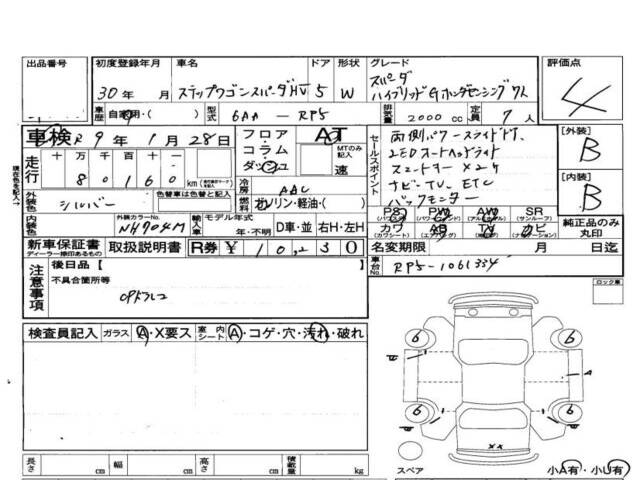 出品番号 初度登録年月 車名 ドア 形状 グレード 評価点
30年 月 ステップワゴンスパーダHV 5 W スパーダ
ハイブリッドGホンダセンシング 7人
4
車歴 自家用・( ) 型式 6AA - RP5 排気量 2000 cc 定員 7 人
車検 R 9年 1月 28日 フロア AT
コラム
ダッシュ
MTのみ記入
速
セールスポイント
両側パワースライドドア
LEDオートヘッドライト
スマートキー×2ケ
ナビ・TV、ETC
バックモニター
[外装]
B
[内装]
B
走行 十 万 千 百 十 一
8 0 1 6 0 km
外装色 シルバー 色替車は色替前の色 冷房 AAC
ガソリン・軽油・( )
PS PW AW SR
(パワーウィンドウ) (サンルーフ)
カワ AB TV ナビ
(カワシート) (エアバッグ) (ナビゲーション)
純正品のみ
丸印
内装色 外装カラーNo. NH704M 輸入車 モデル年式 年・不明 D車・並 右H・左H
新車保証書 取扱説明書 R券 ¥ 10,230
ディーラー捺印あるもの
名変期限 月 日迄
車台No. RP5-1061334
注意事項 後日品 [ ]
不具合箇所等
ロック車
検査員記入 ガラス A・X要ス 室内シート A・コゲ・穴・汚れ・破れ
6 6
A
6 6
XX
長さ cm 幅 cm 高さ cm 積載量 kg
スペア 小A有・小U有